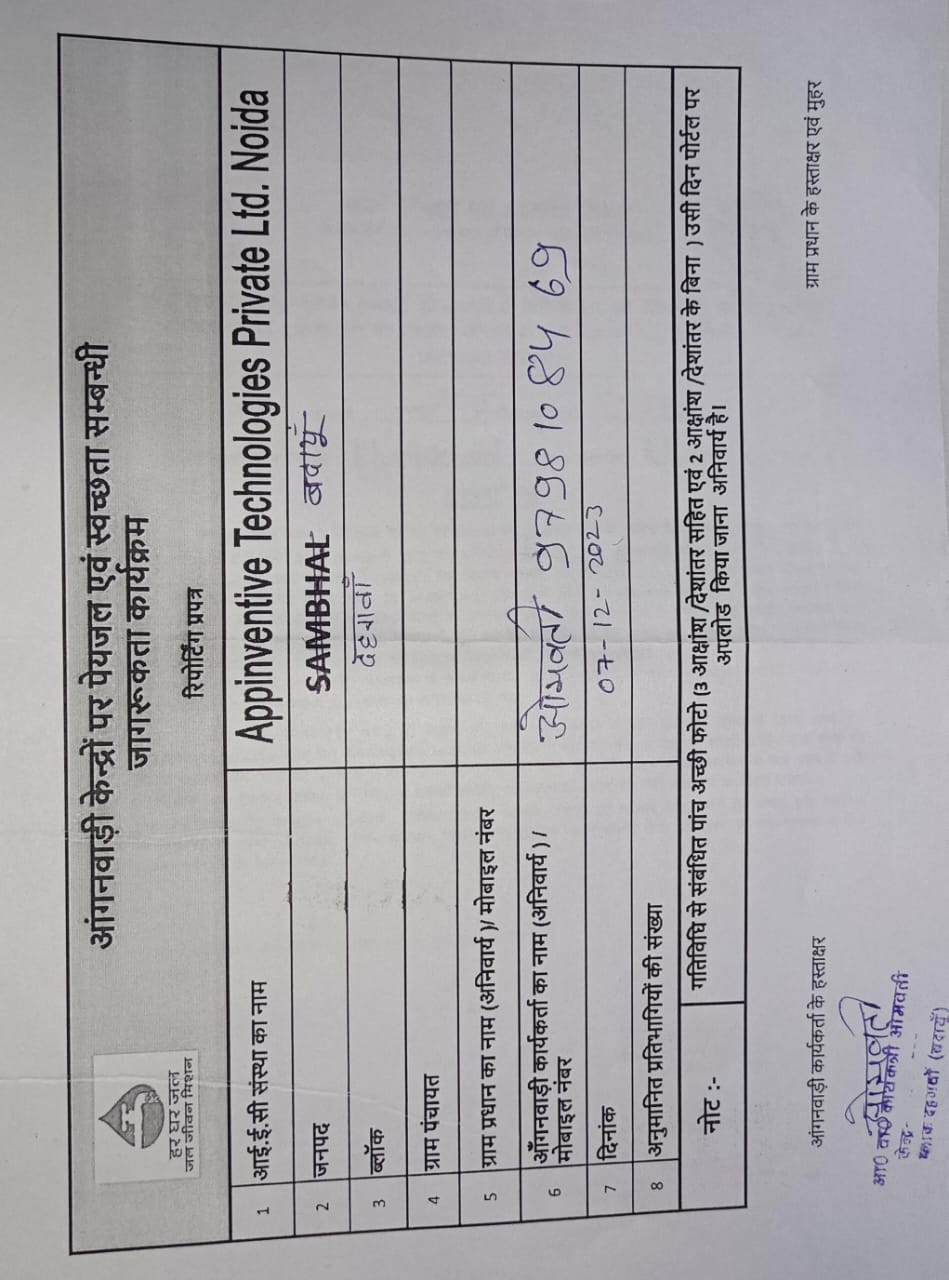 हर घर जल
जल जीवन मिशन
आंगनवाड़ी केन्द्रों पर पेयजल एवं स्वच्छता सम्बन्धी
जागरूकता कार्यक्रम
रिपोर्टिंग प्रपत्र
1 आई.ई.सी संस्था का नाम Appinventive Technologies Private Ltd. Noida
2 जनपद SAMBHAL बदायूं
3 ब्लॉक
4 ग्राम पंचायत
5 ग्राम प्रधान का नाम (अनिवार्य )/ मोबाइल नंबर
6 आँगनवाड़ी कार्यकर्ता का नाम (अनिवार्य ) /
मोबाइल नंबर ओमवती 9798 10 84 69
7 दिनांक 07-12-2023
8 अनुमानित प्रतिभागियों की संख्या
नोट :- गतिविधि से संबंधित पांच अच्छी फोटो (3 आक्षांश /देशांतर सहित एवं 2 आक्षांश /देशांतर के बिना ) उसी दिन पोर्टल पर
अपलोड किया जाना अनिवार्य है।
आंगनवाड़ी कार्यकर्ता के हस्ताक्षर ग्राम प्रधान के हस्ताक्षर एवं मुहर
ओमवती
कार्यकत्री ओमवती
केन्द्र-
(बदायूँ)